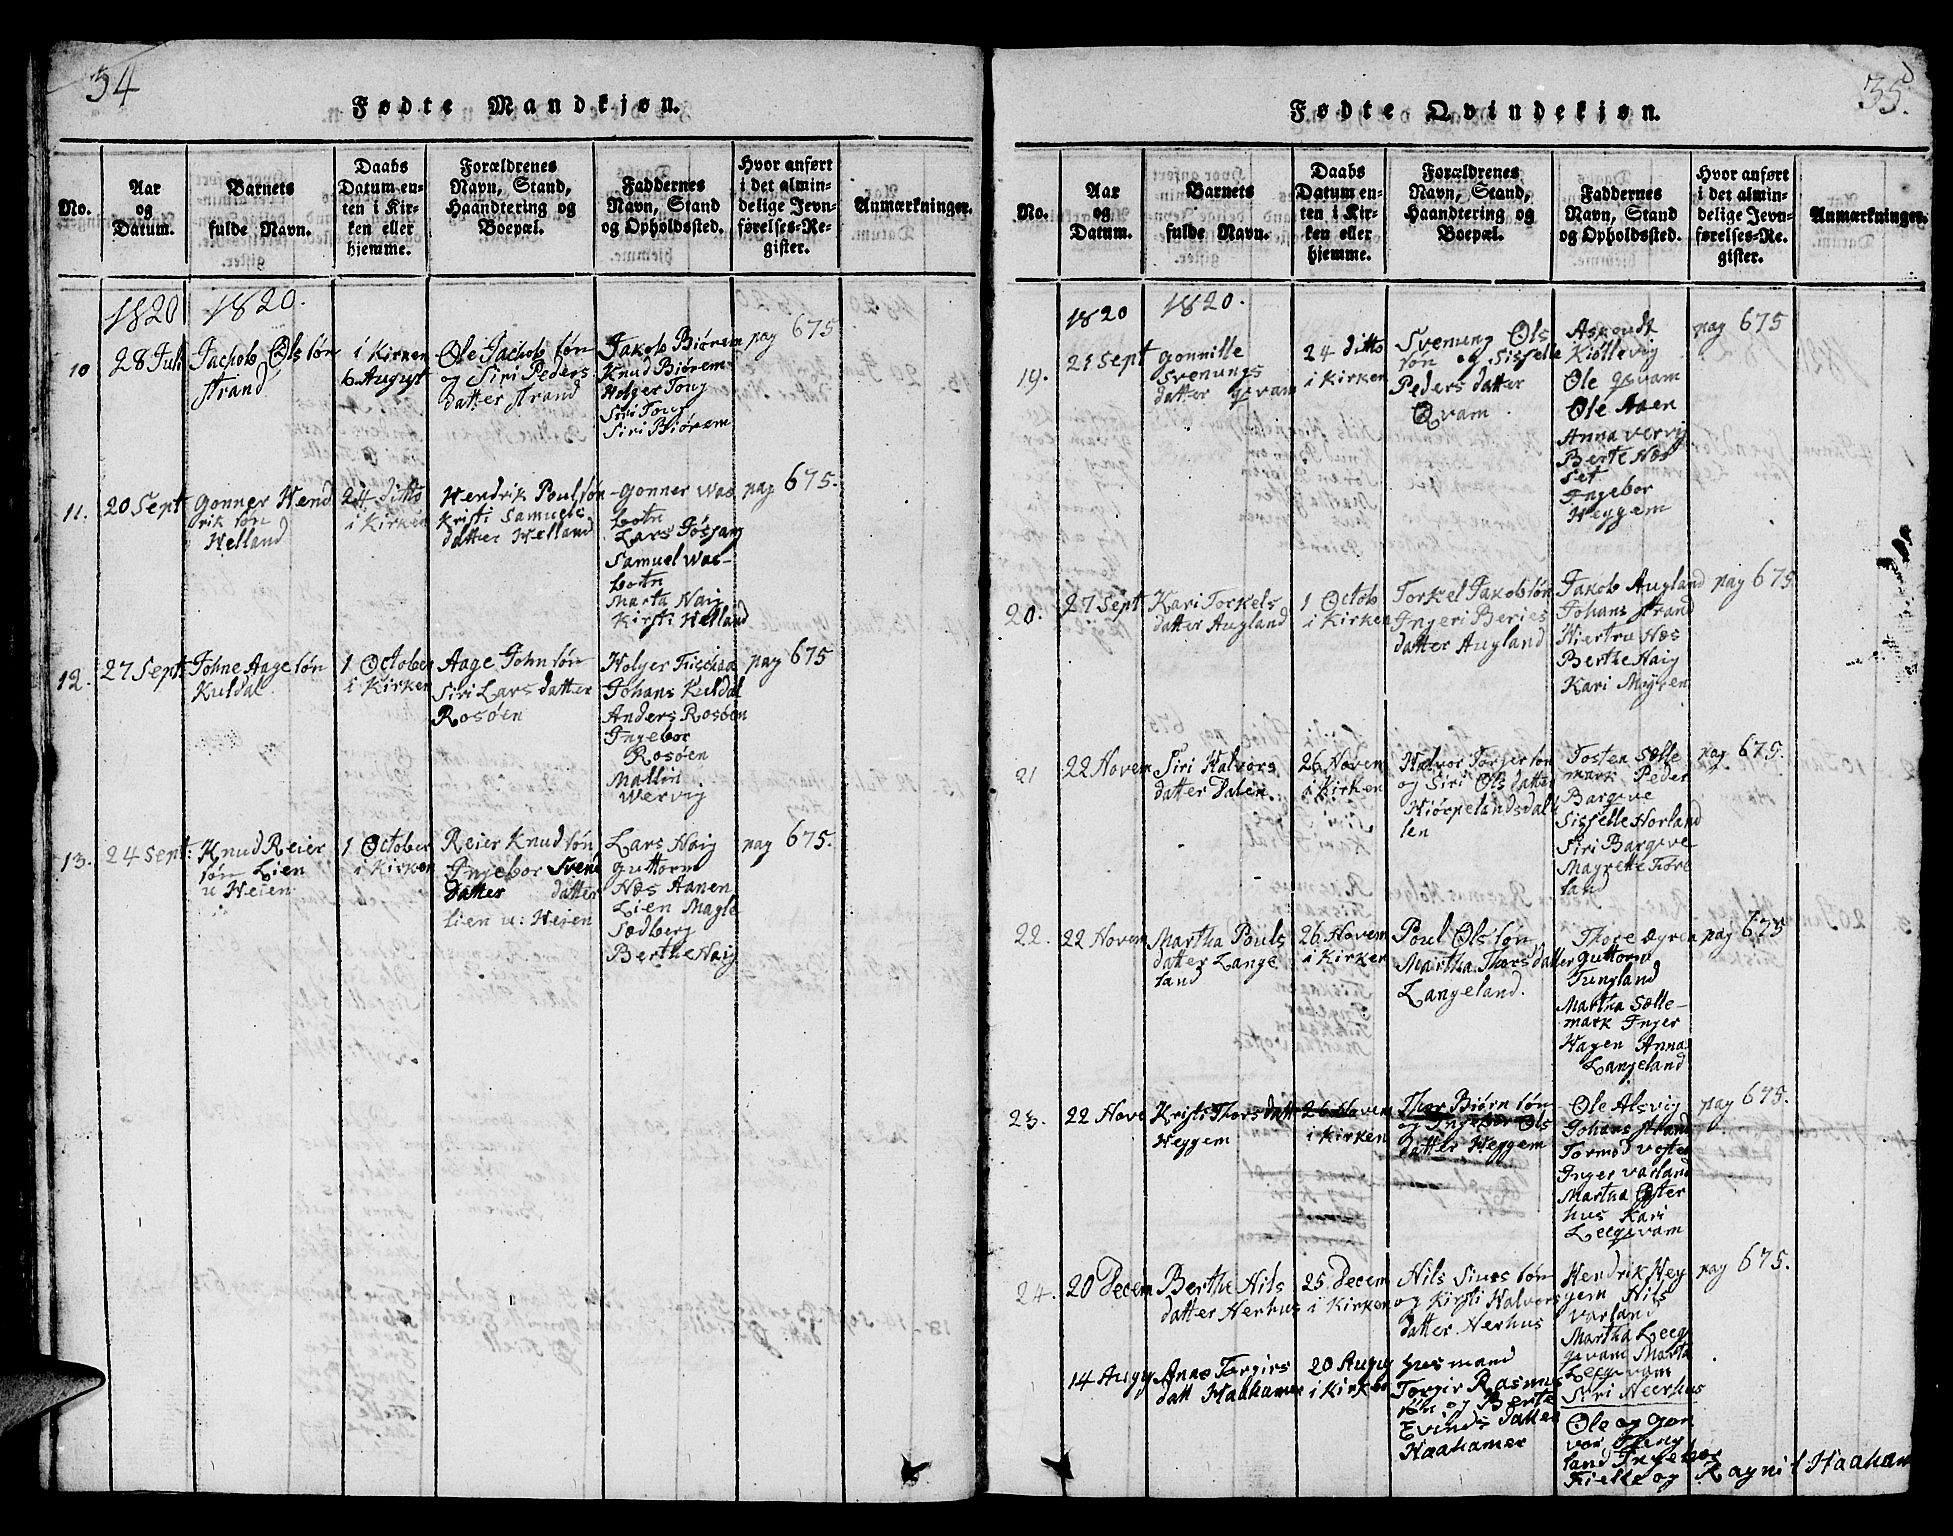 34
Fødte Mandkjøn.
No.
Aar og Datum.
Barnets fulde Navn.
Daabs Datum enten i Kirken eller hjemme.
Forældrenes Navn, Stand, Haandtering og Boepæl.
Faddernes Navn, Stand og Opholdssted.
Hvor anført i det almindelige Jevnførelses-Register.
Anmærkninger.
1820 1820.
10
28 Juli
Jachob Ols søn
strand
i Kirken
6 August
Ole Jachob søn
og Siri Peders
datter strand
Jakob Biørem
Knud Biørem
Holger Tou
Siri Tou
Siri Biørem
pag 675
11.
20 Sept
Gonner Hend
rik søn
Helland
24 ditto
i Kirken
Hendrik Poul søn
Kristi Samuels
datter Helland
Gonner Was
botn
Lars Jøssang
Samuel Was-
botn
Marta Naig
Kirsti Helland
pag 675.
12.
27 Sept
Johne Aage søn
Kuldal
1 October
i Kirken
Aage John søn
Siri Lars datter
Rosøen
Holger
Johans Kuldal
Anders Rosøen
Ingebor
Rosøen
Mallin
Wervig
pag 675
13.
24 Sept:
Knud Reier
søn Lien
u Heien
1 October
i Kirken
Reier Knud søn
Ingebor Svend
Datter datter
Lien u: Heien
Lars Haig
guttorm
Næs Aanen
Lien Magle
Sodberg
Berthe Haig
pag 675.
35.
Fødte Qvindekjøn.
No.
Aar og Datum.
Barnets fulde Navn.
Daabs Datum enten i Kirken eller hjemme.
Forældrenes Navn, Stand, Haandtering og Boepæl.
Faddernes Navn, Stand og Opholdssted.
Hvor anført i det almindelige Jevnførelses-Register.
Anmærkninger.
1820 1820.
19.
21 Sept
Gonnille
Svenungs
datter qvam
24 ditto
i Kirken
Svenung Ols
søn og Sisselle
Peders datter
Qvam
Kiøllevig
Ole qvam
Ole Aaen
Anna Vervig
Berte Næs
set
Ingebor
Heggem
pag 675
20.
27 Sept
Kari Torkels
datter Augland
1 Octob
i Kirken
Torkel Jakob søn
Ingeri Beries
datter Augland
Jakob Augland
Johans strand
Hiertru Næs
Berthe Haig
Kari Møgren
pag 675
21
22 Novem
Siri Halvors
datter Dalen
26 Novem
i Kirken
Halvor Torger søn
og Siri Ols datter
Hiørpelandsdal
len
Tosten Sølle
mark Peder
Bargeve
Sisselle Norland
Siri Bargeve
Magrette Tøre
land
pag 675.
22.
22 Novem
Martha Pouls
datter Lange
land
26 Novem
i Kirken
Poul Ols søn
Martha Thors datter
Langeland.
Thore øgren
guttorm
Tungland
Martha Sølle-
mark Inger
Hagen Anna
Langeland
pag 675
23.
22 Nove
Kristi Thors datt
Heggem
26 Novem
i Kirken
Thor Biørn søn
og Ingebor Ols
datter Heggem
Ole Alsvig
Johans strand
Tormo
Inger Varland
Martha Øster
hus Kari
Leeqvam
pag 675.
24.
20 Decem
Berthe Nils
datter Nerhus
25 Decem
i Kirken
Nils Siurs søn
og Kirsti Halvors
datter Nerhus
Hendrik Heg
gem Nils
Varland
Martha Leeq
qvam Marta
Leeqvam
Siri Neerhus
pag 675.
14 Augu
Anna Torgirs
datt Haahamer
20 Augu
i Kirke
husmand
Torgir Rasmus
søn og Berte
Evinds datter
Haahamer
Ole og Gon
vor Tung
land Ingebor
Fielle og Ragnil Haaham